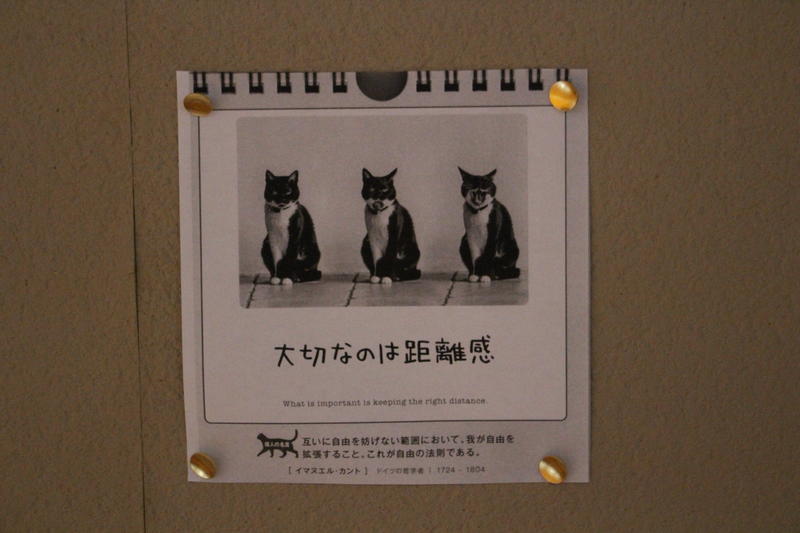 大切なのは距離感
What is important is keeping the right distance.
偉人の名言
互いに自由を妨げない範囲において、我が自由を
拡張すること、これが自由の法則である。
[ イマヌエル・カント ] ドイツの哲学者 | 1724 - 1804